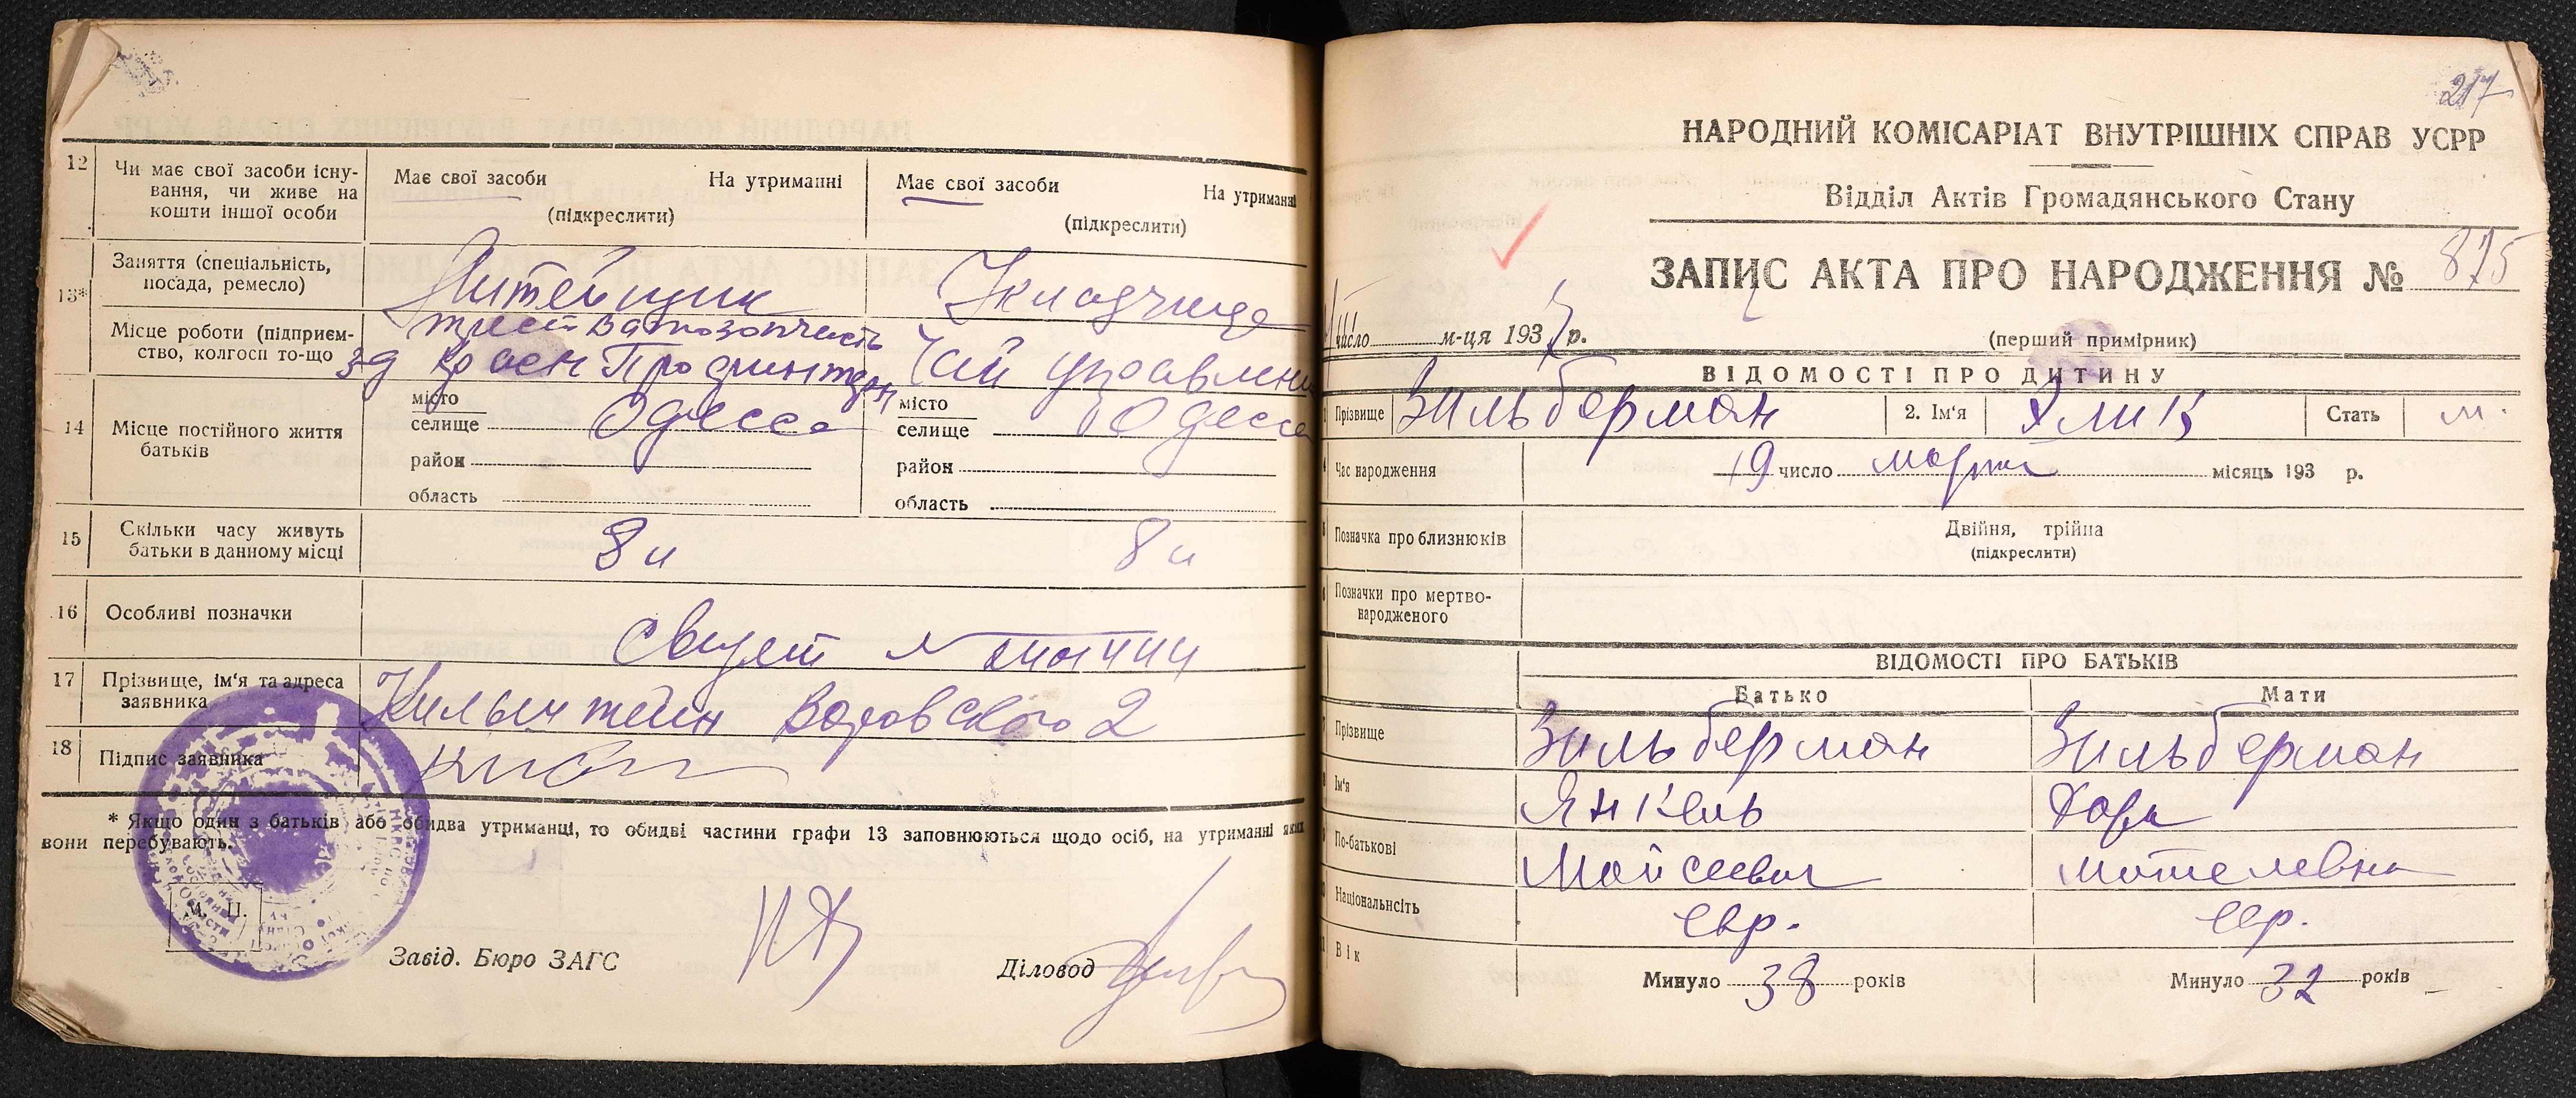 12
Чи має свої засоби існу-
вання, чи живе на
кошти іншої особи
Має свої засоби На утриманні
(підкреслити)
Має свої засоби На утриманні
(підкреслити)
13*
Заняття (спеціальність,
посада, ремесло)
Литейщик
Укладчица
Місце роботи (підприєм-
ство, колгосп то-що
трест
з-д Красн Профинтерн
Чай управлени
14
Місце постійного життя
батьків
місто
селище Одесса
район
область
місто
селище Одесса
район
область
15
Скільки часу живуть
батьки в данному місці
8 л
8 л
16
Особливі позначки
17
Прізвище, ім'я та адреса
заявника
Воровского 2
18
Підпис заявника
* Якщо один з батьків або обидва утриманці, то обидві частини графи 13 заповнюються щодо осіб, на утриманні яких
вони перебувають.
М. П.
Завід. Бюро ЗАГС
Діловод
217
НАРОДНИЙ КОМІСАРІАТ ВНУТРІШНІХ СПРАВ УСРР
Відділ Актів Громадянського Стану
ЗАПИС АКТА ПРО НАРОДЖЕННЯ № 875
число м-ця 193 р.
(перший примірник)
ВІДОМОСТІ ПРО ДИТИНУ
Прізвище Зильберман 2. Ім'я Стать м.
Час народження
19 число марта місяць 193 р.
Позначка про близнюків
Двійня, трійня
(підкреслити)
Позначки про мертво-
народженого
ВІДОМОСТІ ПРО БАТЬКІВ
Батько Мати
Прізвище Зильберман Зильберман
Ім'я Янкель Дора
По-батькові Мойсеевич Мотелевна
Національність евр. евр.
Вік
Минуло 38 років Минуло 32 років